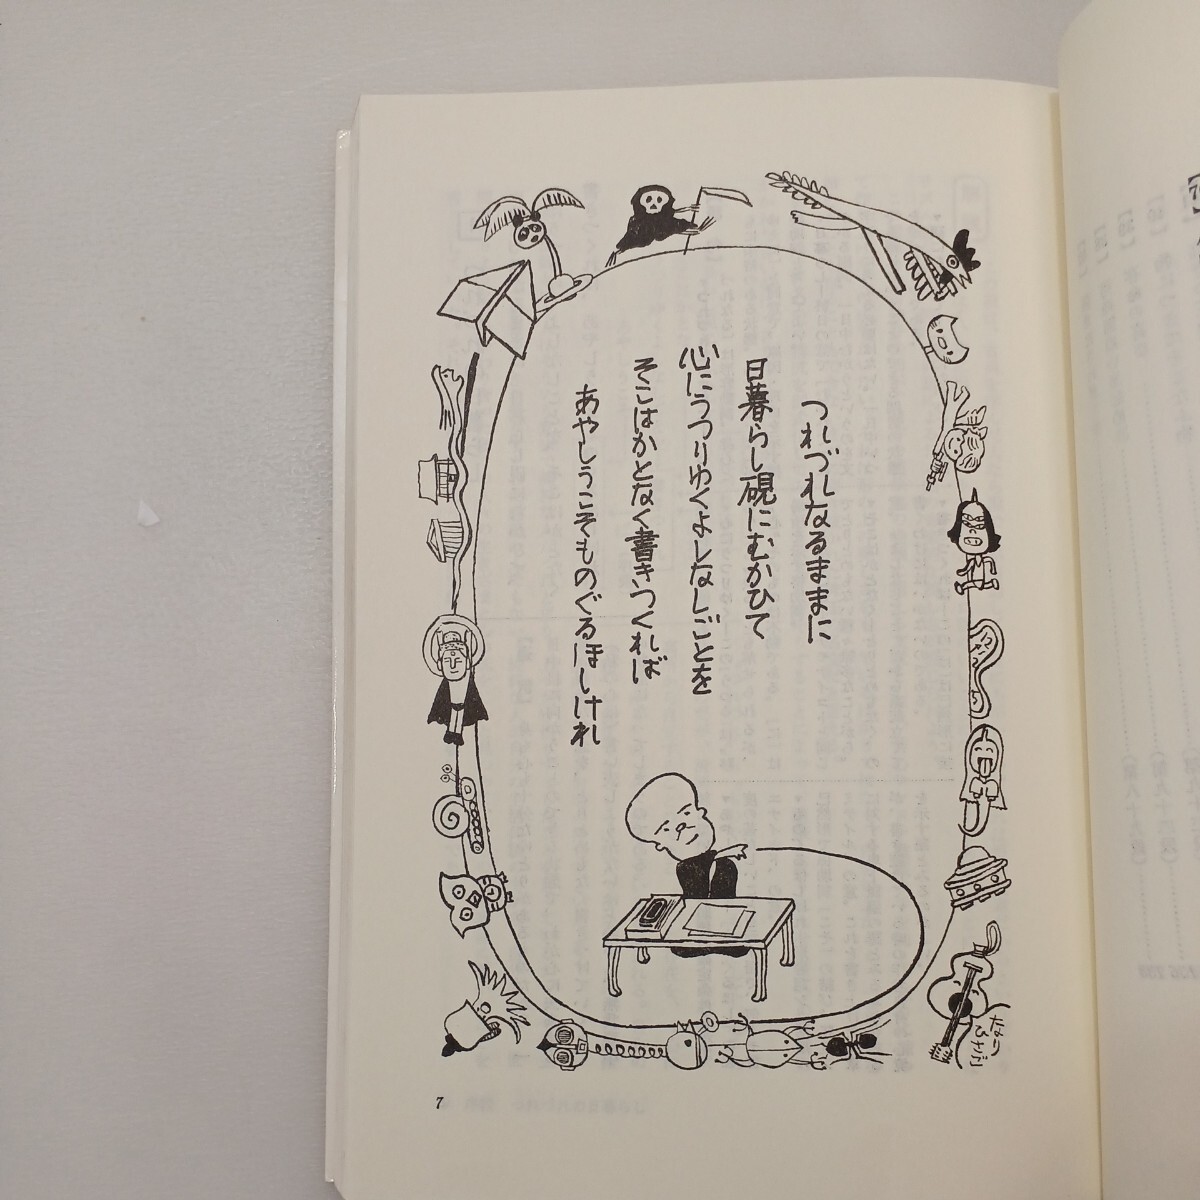 つれづれなるままに
日暮らし硯にむかひて
心にうつりゆくよしなしごとを
そこはかとなく書きつくれば
あやしうこそものぐるほしけれ
なり
ひさご
7